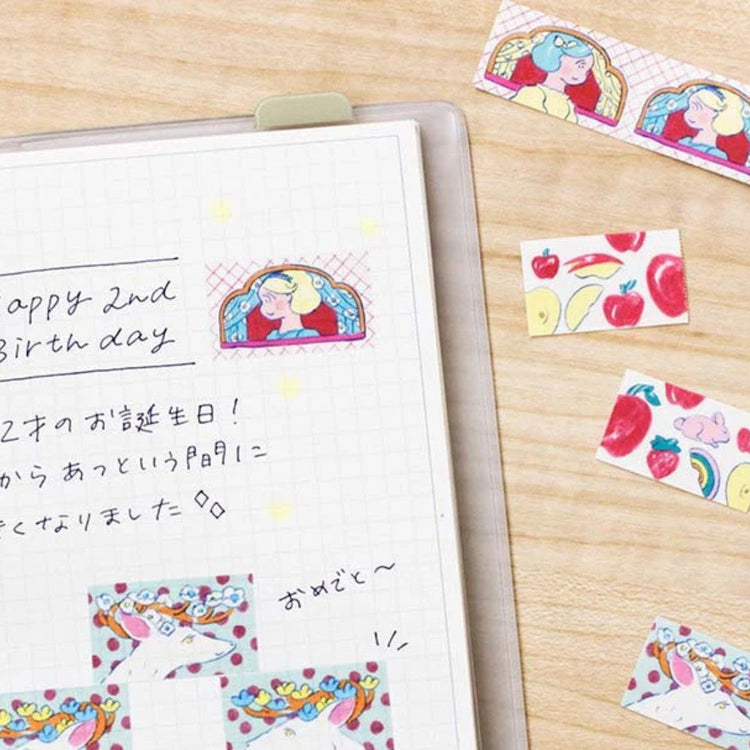 appy 2nd
Birthday
2才のお誕生日!
からあっという間に
きくなりました
おめでと〜